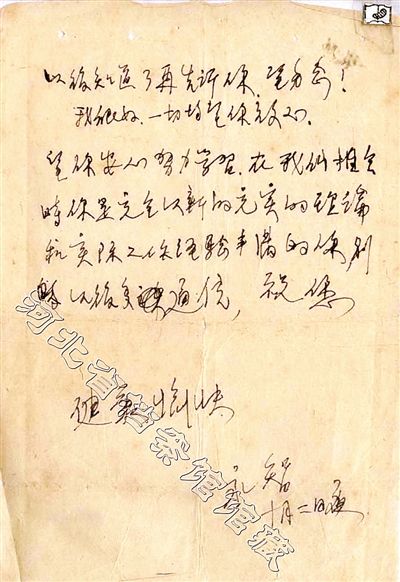 以後知道了再告訴你，望勿念！
我很好，一切均望你放心。
望你安心努力学習，在我們相会
時你是完全以新的充实的理論
和实际工作經驗丰满的你，别
以後多通信，祝你
健康愉快
智
十月二日夜
河北省档案馆馆藏